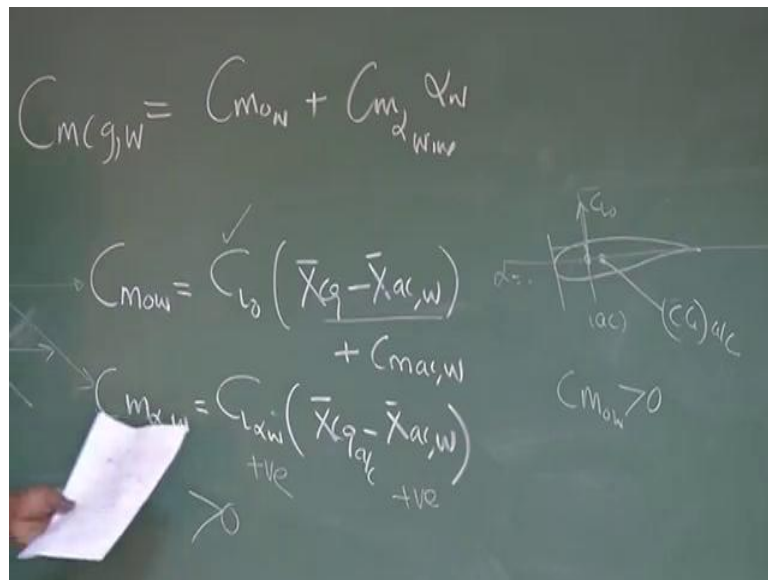 C_mcg,w = C_m0w + C_mαw,w αw
C_m0w = C_L0 (X̄cg - X̄ac,w)
+ C_mac,w
C_mαw = C_Lαw (X̄cg a/c - X̄ac,w)
+ve +ve
>0
C_L0
(ac)
(CG) a/c
C_m0w >0